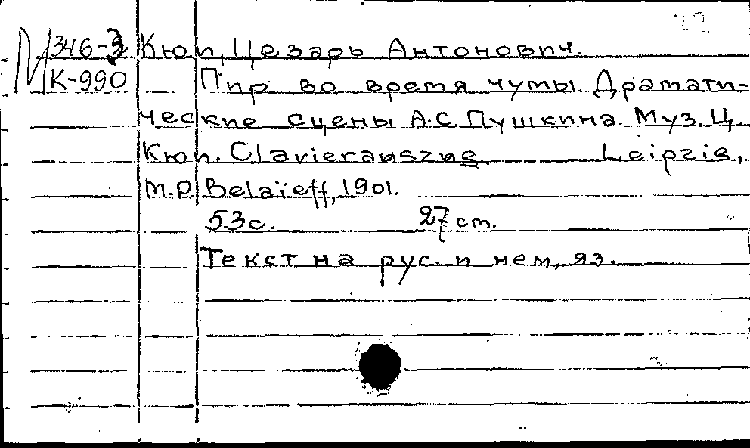 М 346-3 Кюи, Цезарь Антонович.
К-990 Пир во время чумы. Драмати-
ческие сцены А.С. Пушкина. Муз. Ц.
Кюи. Clavierauszug Leipzig,
M.P. Belaïeff, 1901.
53с. 27 cm.
Текст на рус. и нем. яз.